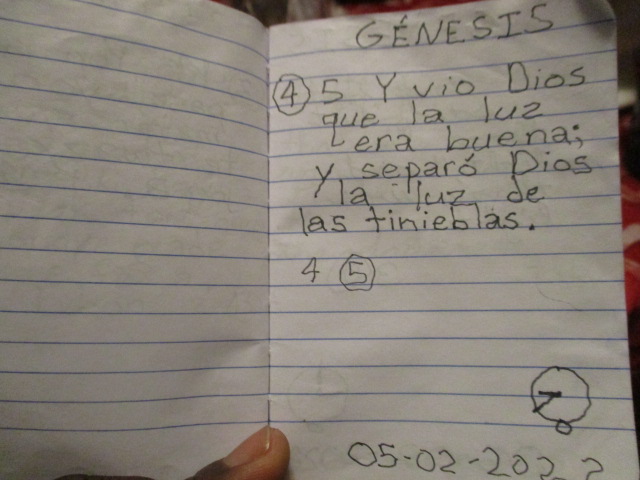 GÉNESIS
4 5 Y vio Dios
que la luz
era buena;
y separó Dios
la luz de
las tinieblas.
4 5
05-02-202